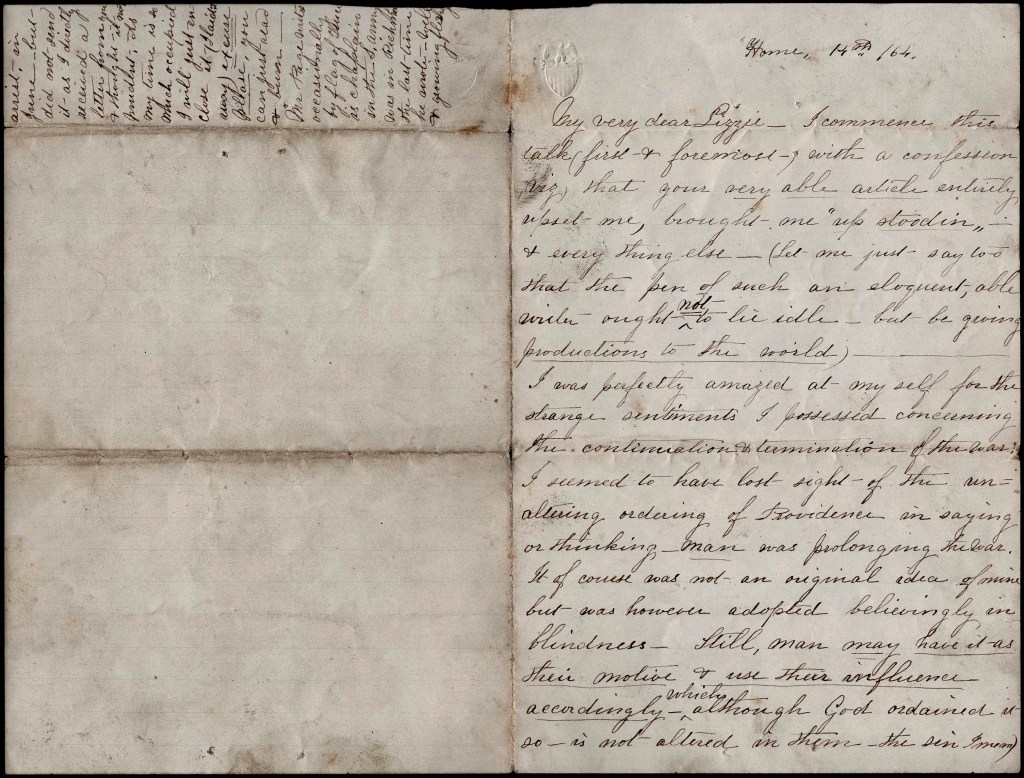 "Home, 14th /64.
My very dear Lizzie — I commence this
talk (first & foremost,) with a confession
viz, that your very able article entirely
upset me, brought me "up stoodin„ —
& every thing else — (Let me just say too
that the pen of such an eloquent, able
writer ought not to lie idle — but be giving
productions to the world) ———
I was perfectly amazed at my self for the
strange sentiments I possessed concerning
the continuation & termination of the war:
I seemed to have lost sight of the un=
altering ordering of Providence in saying
or thinking — man was prolonging the war.
It of course was not an original idea of mine
but was however adopted believingly in
blindness — Still, man may have it as
their motive & use their influence
accordingly — which although God ordained it
so — is not altered in them — the sin I mean)
arrest, in
June — but
did not send
it — as I directly
received a
letter from you
& short, his is
prudent, its
my time is so
much occupied
I will just en=
close it (plaids
way) excuse
please, you
can just read
& burn —
Mr Page writes
occasionally
by flag of truce
is chaplain
in the S. army
was in Richmond
the last time
he wrote —
& growing fleshy